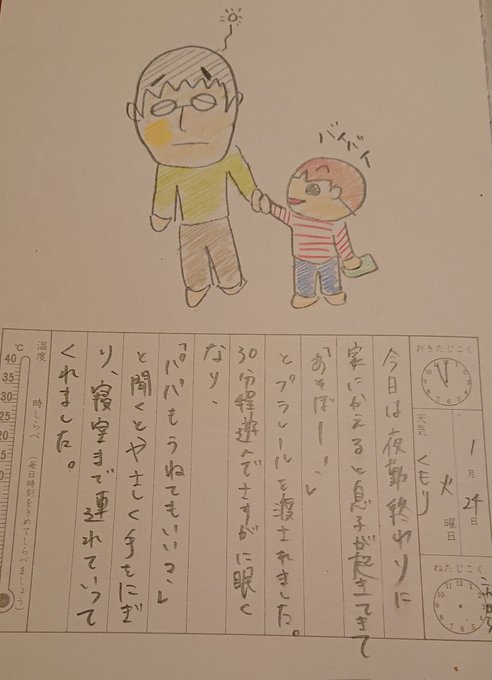 バイバイ
おきたじこく
1月24日
火曜日
天気 くもり
ねたじこく
これから
今日は夜勤終わりに
家にかえると息子が起きてきて
「あそぼー!」
とプラレールを渡されました。
30分程遊んでさすがに眠く
なり、
「パパもうねてもいい?」
と聞くとやさしく手をにぎ
り、寝室まで連れていって
くれました。
温度 時しらべ (毎日時刻をきめてしらべましょう)
℃
40
35
30
25
20
15
10
5
0